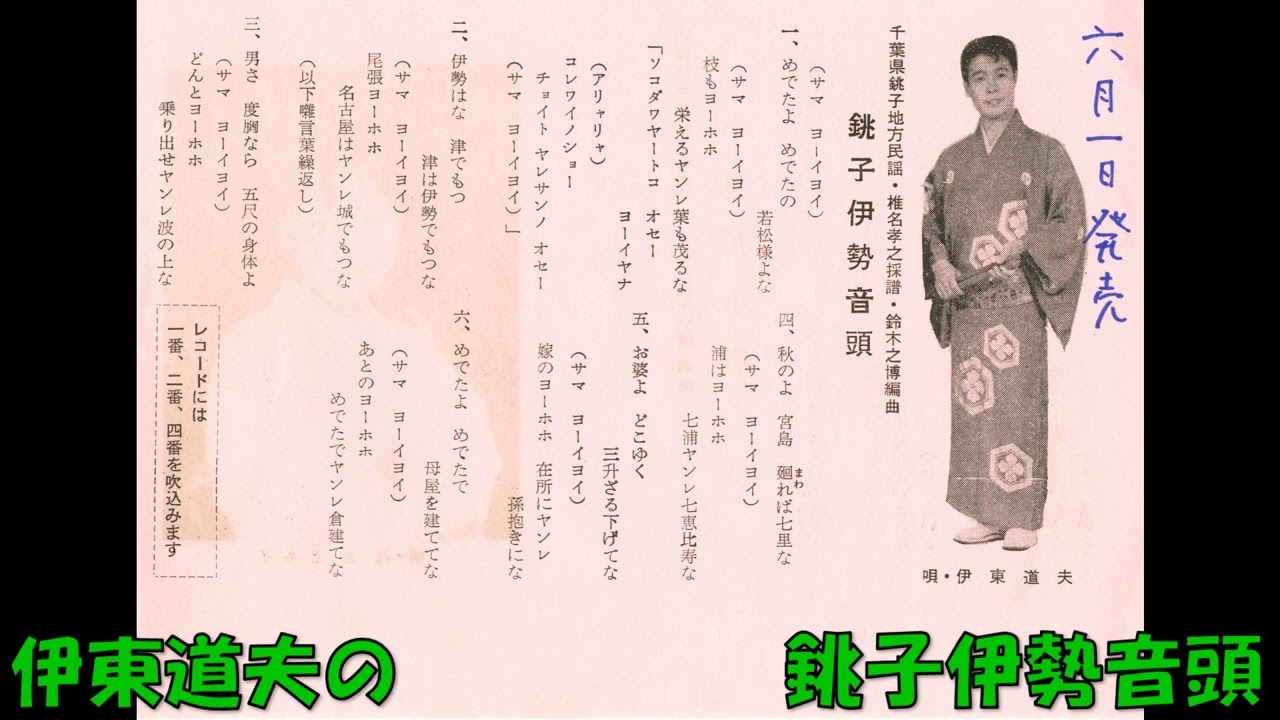 六月一日発売
唄・伊東道夫
千葉県銚子地方民謡・椎名孝之採譜・鈴木之博編曲
銚子伊勢音頭
(サマ ヨーイヨイ)
一、めでたよ めでたの
若松様よな
(サマ ヨーイヨイ)
枝もヨーホホ
栄えるヤンレ葉も茂るな
「ソコダワヤートコ オセー
ヨーイヤナ
(アリャリャ)
コレワイノショー
チョイト ヤレサンノ オセー
(サマ ヨーイヨイ)」
二、伊勢はな 津でもつ
津は伊勢でもつな
(サマ ヨーイヨイ)
尾張ヨーホホ
名古屋はヤンレ城でもつな
(以下囃言葉繰返し)
三、男さ 度胸なら 五尺の身体よ
(サマ ヨーイヨイ)
どんとヨーホホ
乗り出せヤンレ波の上な
四、秋のよ 宮島 廻れば七里な
まわ
(サマ ヨーイヨイ)
浦はヨーホホ
七浦ヤンレ七恵比寿な
五、お婆よ どこゆく
三升ざる下げてな
(サマ ヨーイヨイ)
嫁のヨーホホ 在所にヤンレ
孫抱きにな
六、めでたよ めでたで
母屋を建ててな
(サマ ヨーイヨイ)
あとのヨーホホ
めでたでヤンレ倉建てな
レコードには
一番、二番、四番を吹込みます
伊東道夫の
銚子伊勢音頭